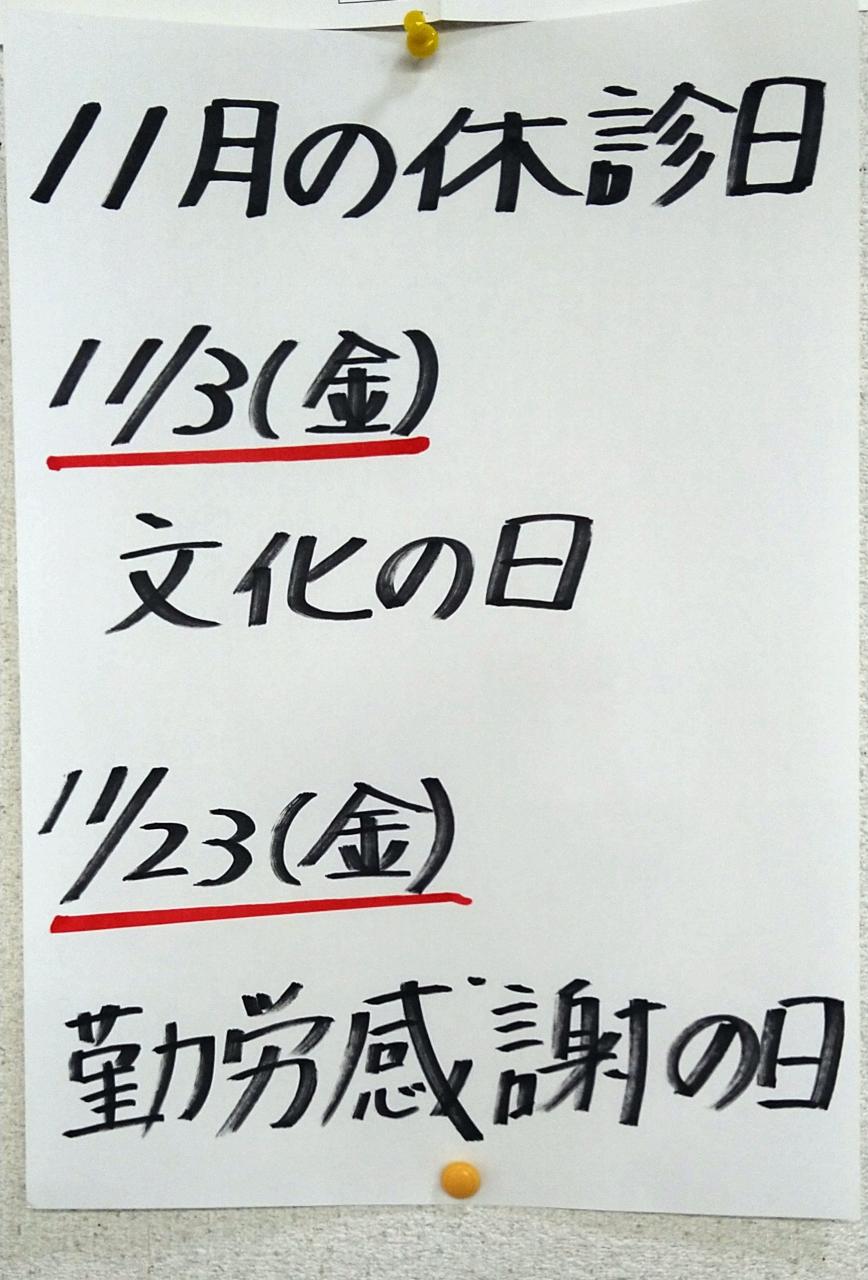 11月の休診日
11/3(金)
文化の日
11/23(金)
勤労感謝の日